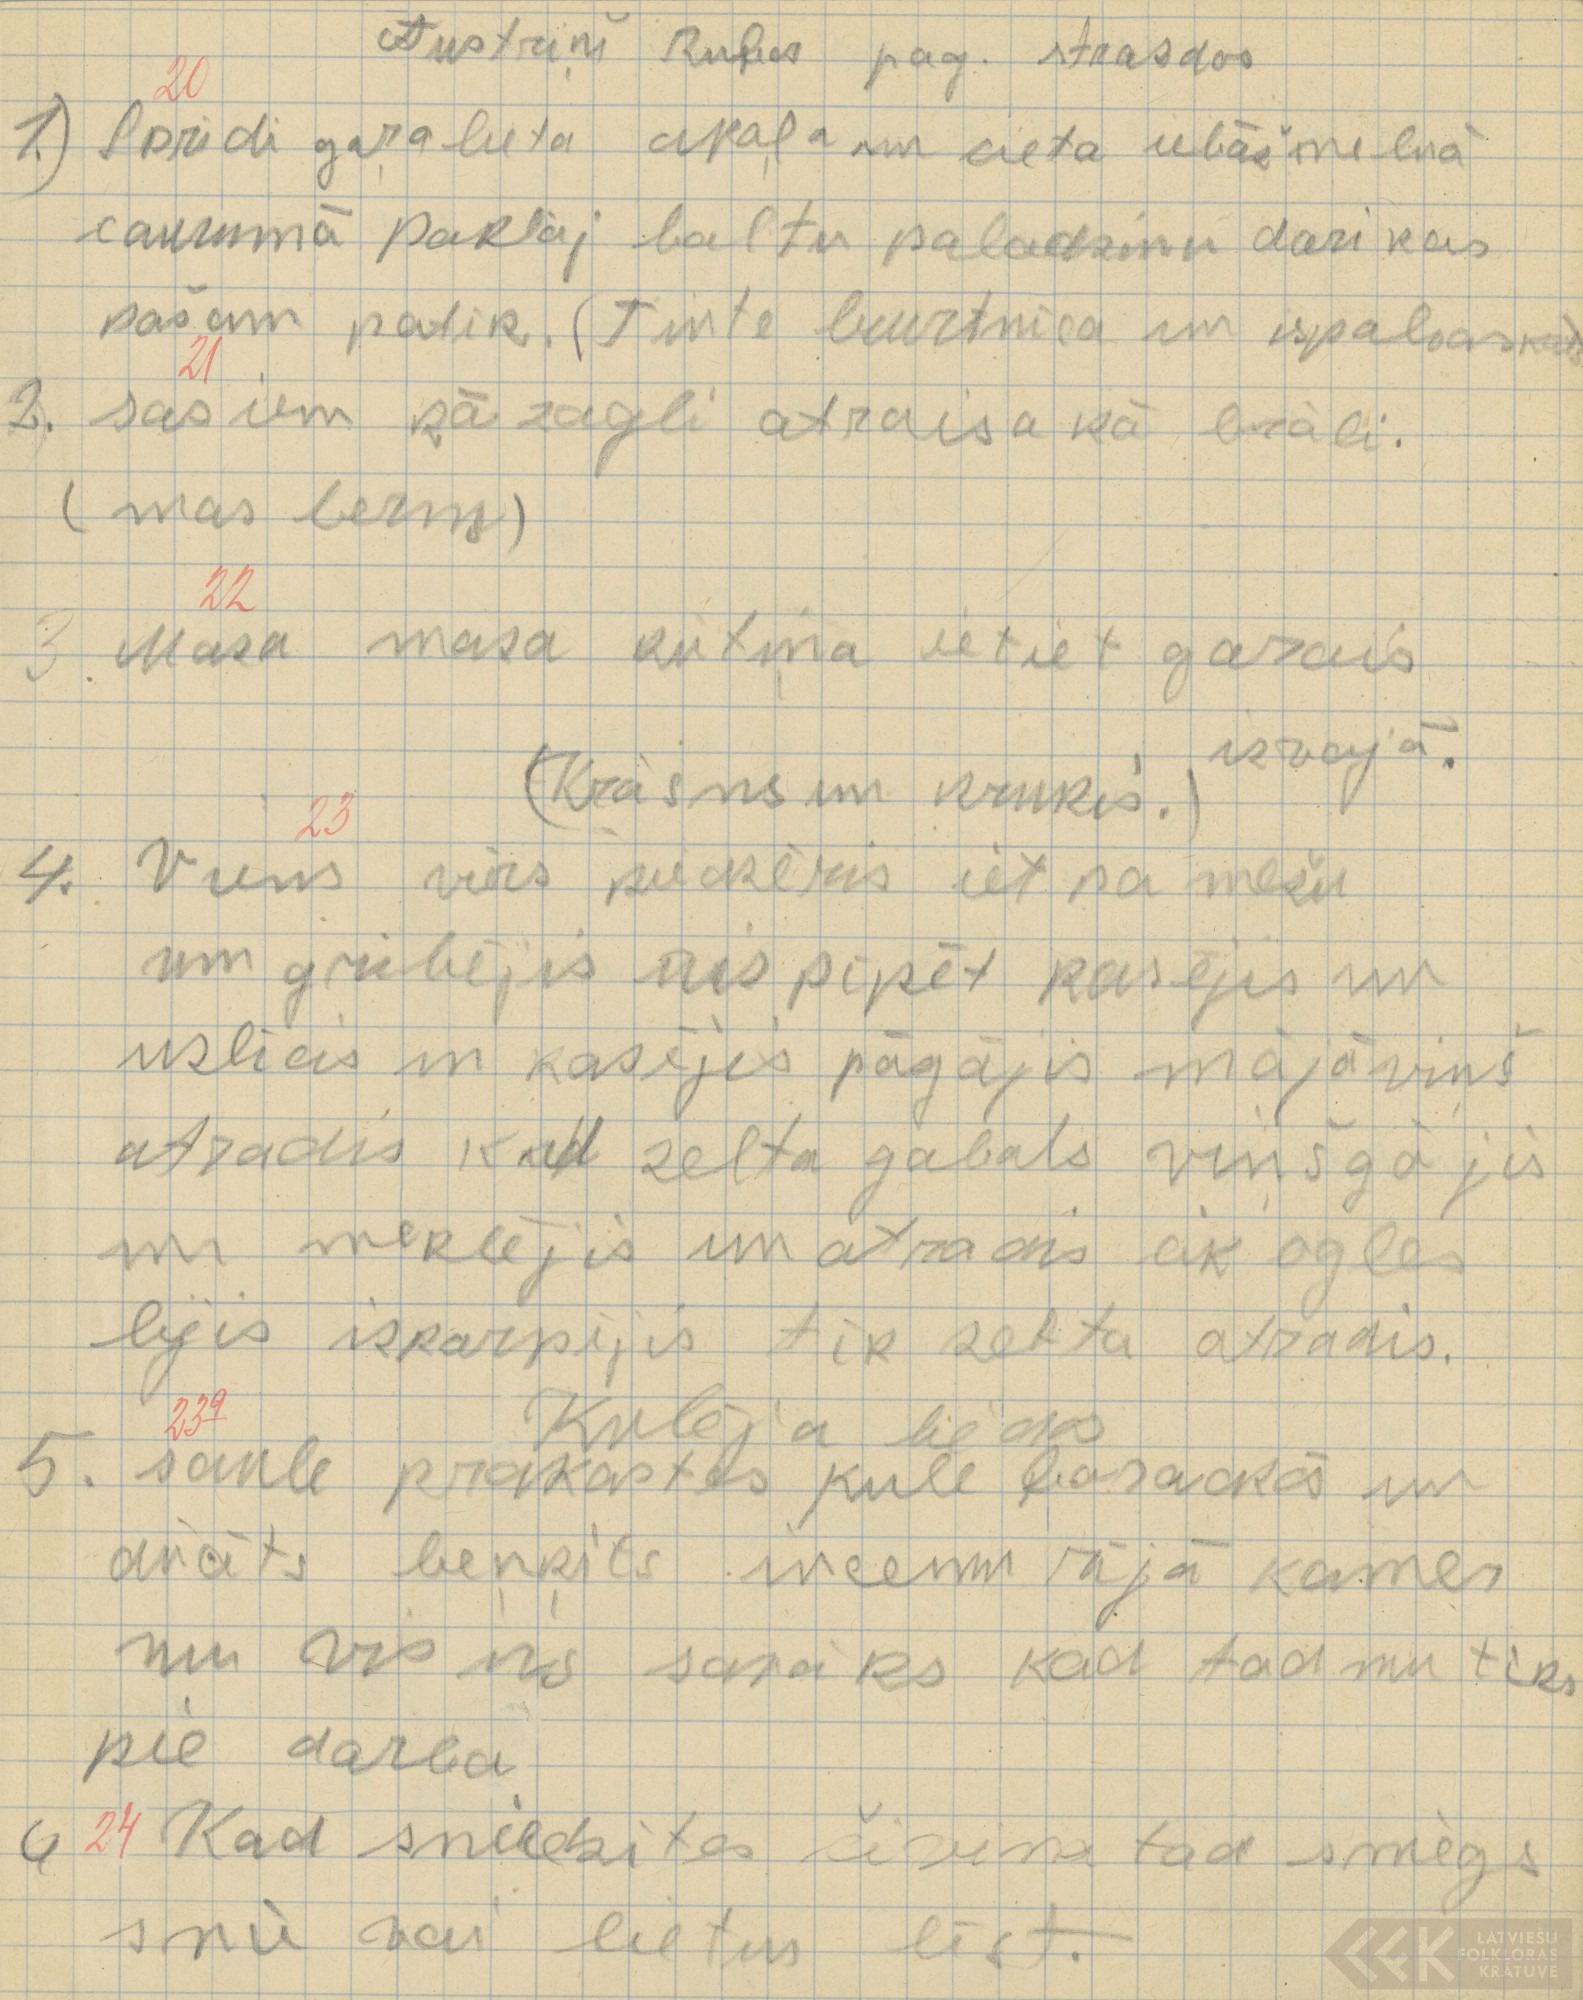 Austriņš Rubas pag. strazdos
20
1.) Sprīdi gaŗa lieta apaļa un cieta iebāž melnā
caurumā paklāj baltu paladziņu dari kas
pašam patik. (Tinte burtnica un
21
2. sasien kā zagli atraisa kā brāli.
(mas berns)
22
3. Maza maza kūtiņa ietiet garais
izvajā.
(Krāsns un krukis.)
23
4. Viens virs piedzēris iet pa mežu
un gribējis pipēt kasījis un
uzlicis un kasījis pāgājis mājā viņš
atradis kad zelta gabals viņš gājis
un meklējis un atradis cik ogles
bijis izkarpijis tik zelta atradis.
23a
Kulēja lieds
5. saule prakastes kule baradas un
dviāts beņķits vircenu rājā kamēr
nu vis iks sanāks kad tad nu tiks
pie darba
6 24 Kad sniedzites čivina tad sniegs
snii vai lietus list.
LATVIEŠU
FOLKLORAS
KRĀTUVE